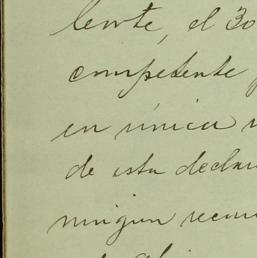 lente, el 30
competente
en única
de esta declar
ningun recur